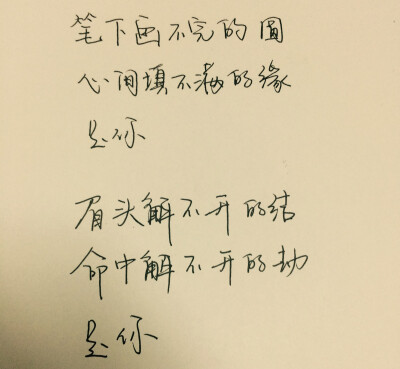 笔下画不完的圆
心间填不满的缘
是你
眉头解不开的结
命中解不开的劫
是你